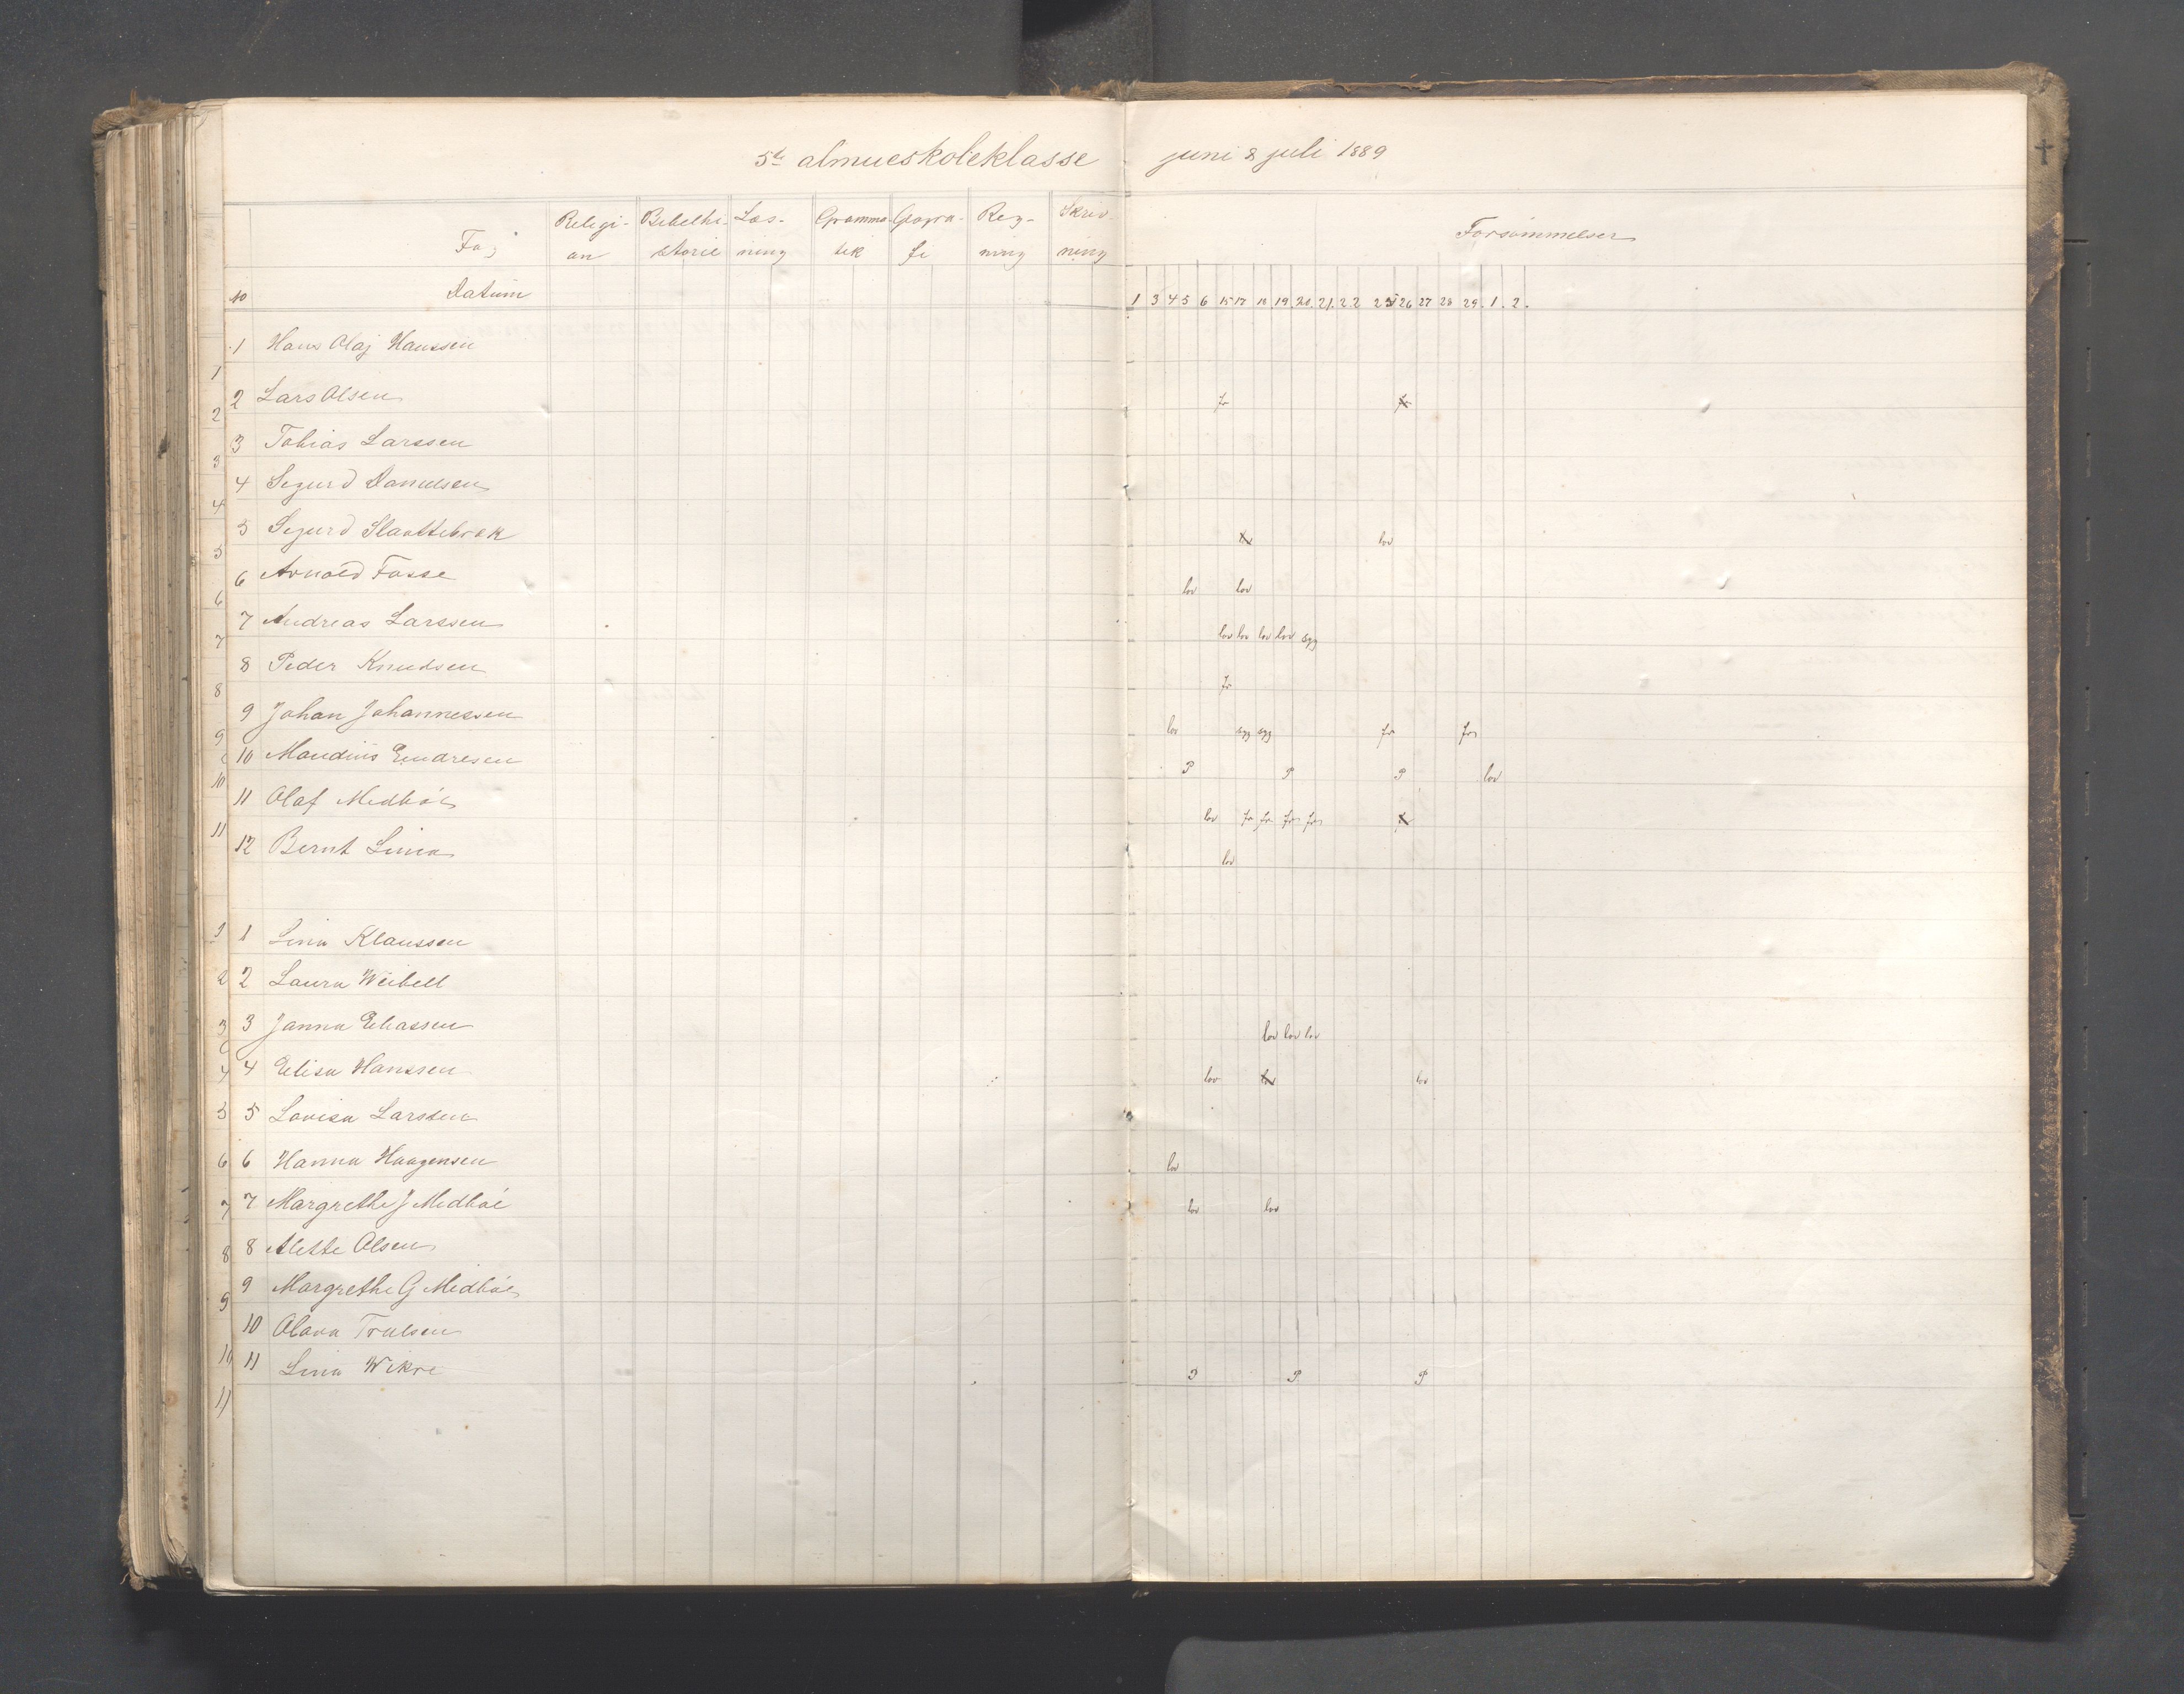 5te almueskoleklasse juni & juli 1889
Fag Religi- Bibelhi- Læs- Gramma- Geogra- Reg- Skriv-
on storie ning tik fi ning ning
Forsömmelser
Datum
1 3 4 5 6 15 17 18 19 20. 21. 22 25 26 27 28 29. 1. 2.
1 Hans Olaj Hanssen
2 Lars Olsen fr
3 Tobias Larssen
4 Sigurd Danielsen
5 Sigurd Slaattebrek lov
6 Arnold Fosse lov lov
7 Andreas Larssen lov lov lov lov syg
8 Peder Knudsen fr
9 Johan Johannessen lov syg syg fr fr
10 Maudius Endresen P P P lov
11 Olaf Medböe lov fr fr fr fr
12 Bernt Linia lov
1 Lina Klaussen
2 Laura Weibell
3 Janna Eliassen lov lov lov
4 Elisa Hanssen lov lov lov
5 Lovisa Larssen
6 Hanna Haagensen lov
7 Margrethe J Medböe lov lov
8 Alette Olsen
9 Margrethe G Medböe
10 Olava Trulsen
11 Lina Wikre P P P